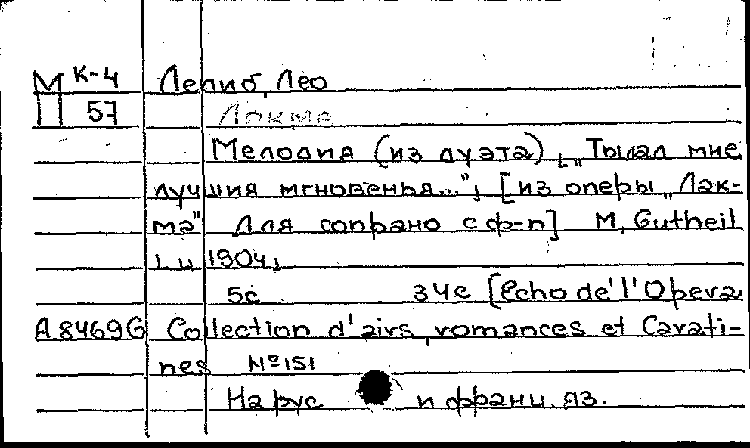 М К-4 Делиб, Лео
П 57 Лакме
Мелодия (из дуэта) ["Ты дал мне
лучшия мгновенья..."] [из оперы „Лак-
мэ" Для сопрано с ф-п] М, Gutheil
1904
5с 34е [Echo de l'Opera
А8469G Collection d'airs, romances et Cavati-
nes №151
На рус и франц. яз.